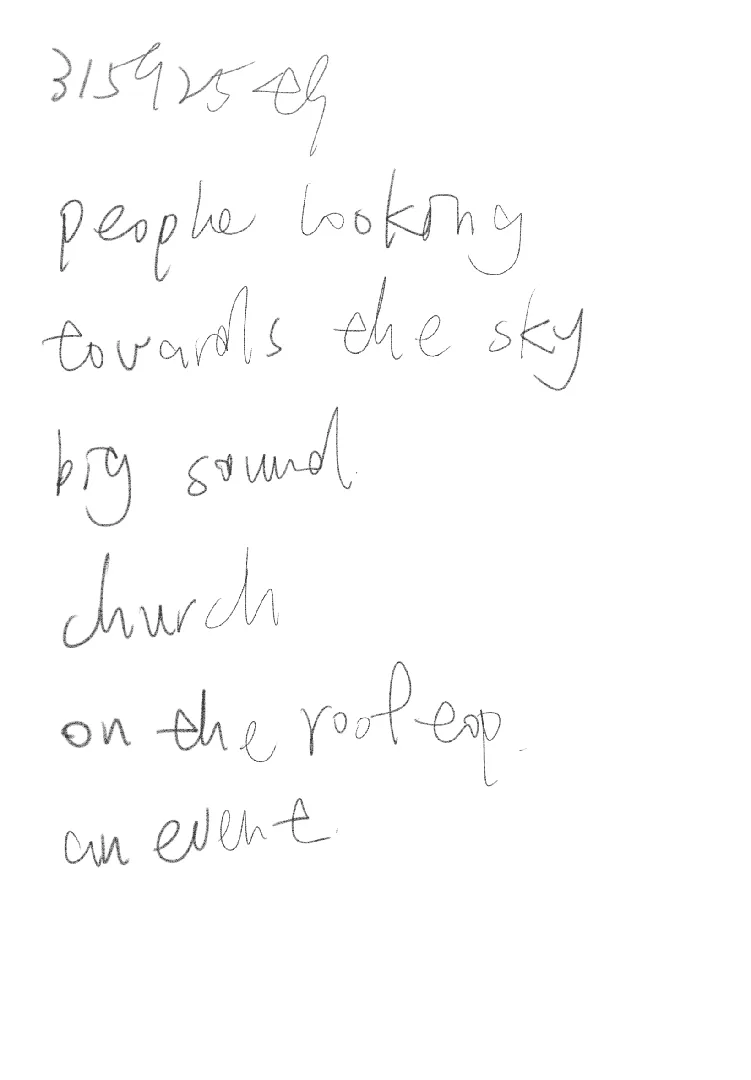 people looking
towards the sky
big sound.
church
on the rooftop.
an event.